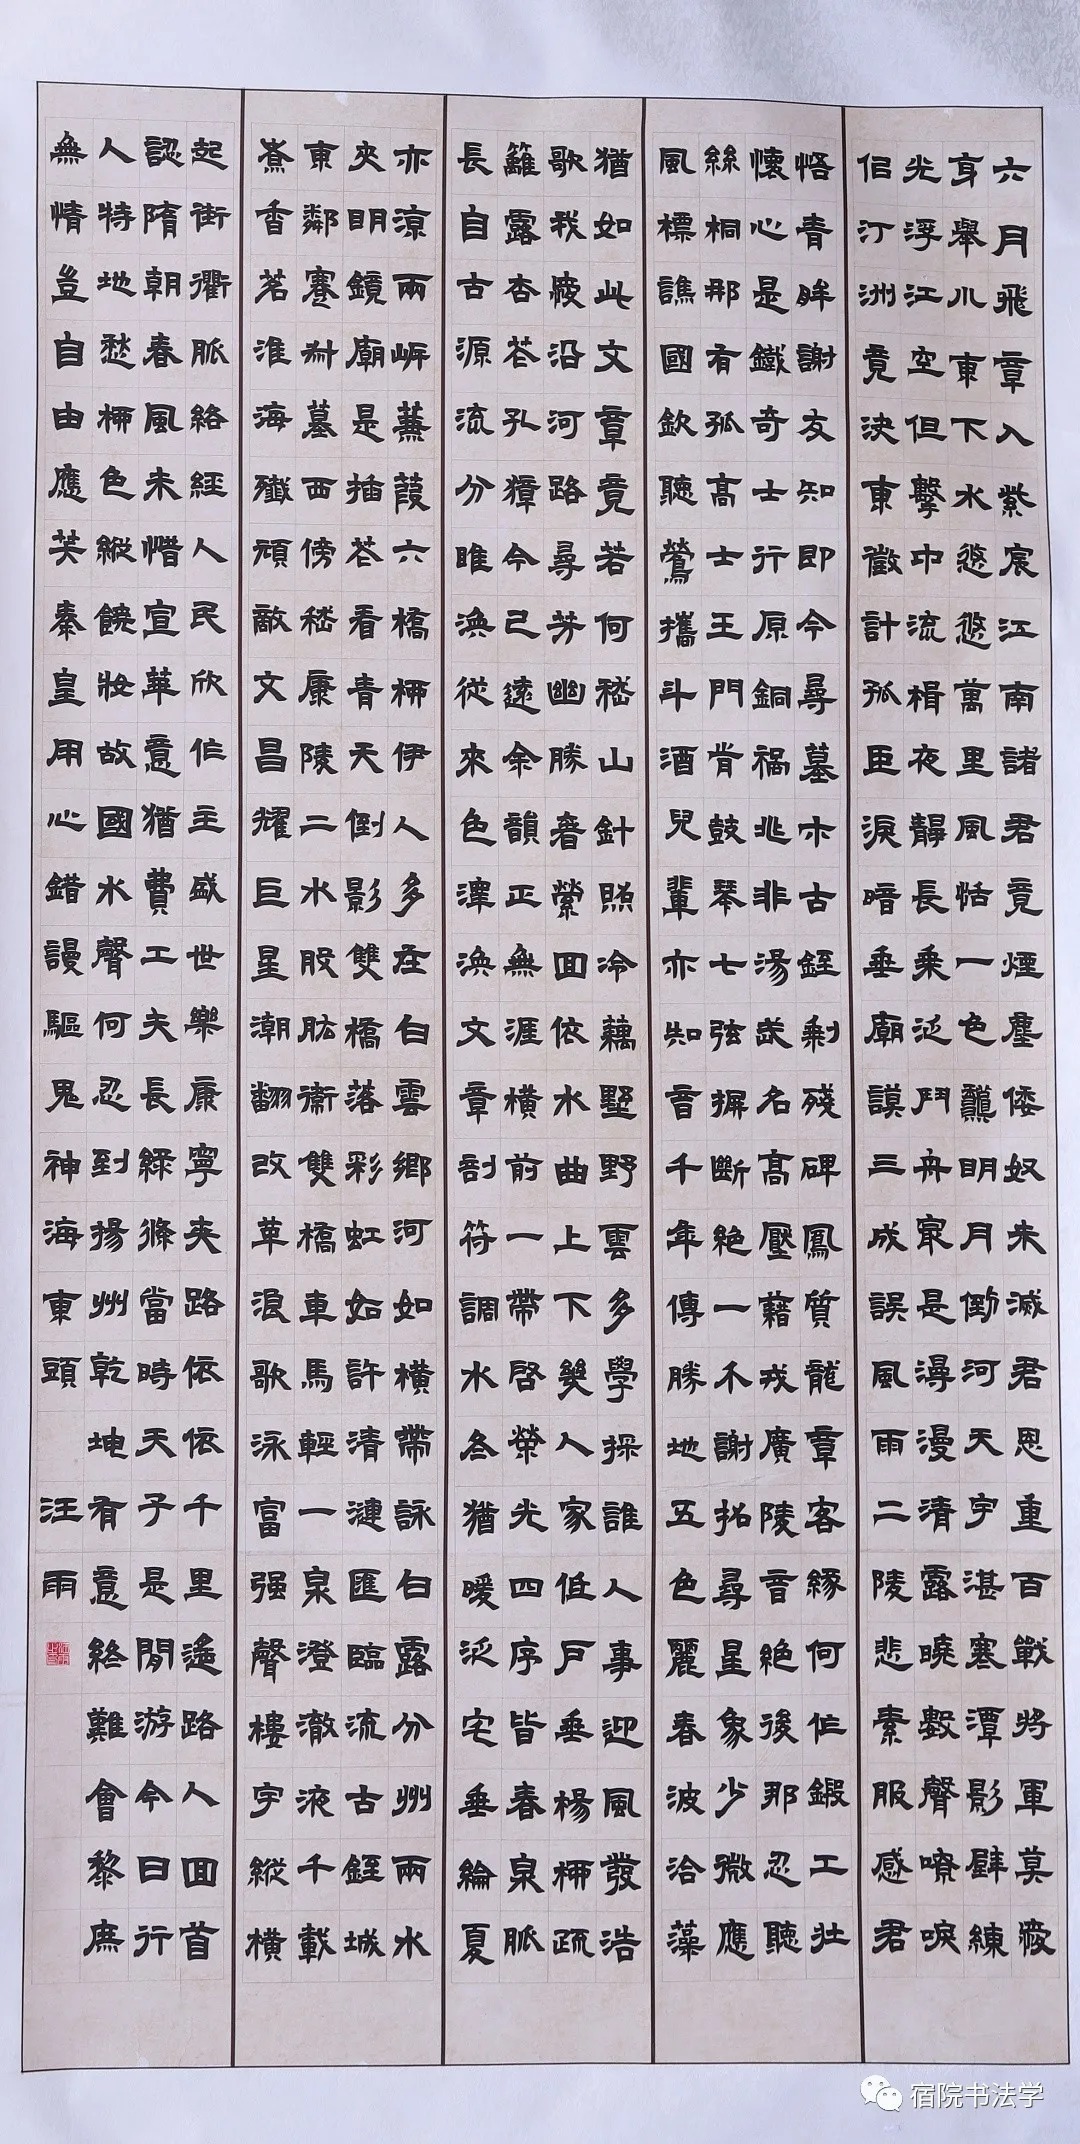 六月飛章入紫宸江南諸君竟煙塵倭奴未滅君恩重百戰將軍莫疲
身舉川東下水悠悠萬里風恬一色龔明月倒河天宇湛寒潭影壁練
光浮江空但擊中流楫夜靜長乘泛鬥舟寂是潯漫清露曉數聲嘹唳
侶汀洲竟決東徵計孤臣淚暗垂廟謨三成誤風雨二陵悲素服感君
恪青眸謝友知即今尋墓木古銍剩殘碑鳳質龍章客緣何作鍛工壯
懷心是鐵奇士行原銅禍兆非湯武名高壓藉戎廣陵音絕後那忍聽
絲桐那有孤高士王門肯鼓琴七弦摒斷絕一不謝拓尋星象少微應
風標譙國欽聽鶯攜斗酒兒輩亦知音千年傳勝地五色麗春波洽藻
猶如此文章竟若何嵇山針照冷藕墅野雲多學探誰人事迎風發浩
歌我疲沿河路尋芳幽勝奢縈回依水曲上下夾人家低戶垂楊柳疏
籬露杏花孔獐今已遠余韻正無涯橫前一帶啓榮光四序皆春泉脈
長自古源流分睢渙從來色澤渙文章剖符調水冬猶暖泛宅垂綸夏
亦涼兩岍蒹葭六橋柳伊人多在白雲鄉河如橫帶詠白露分州兩水
夾明鏡廟是插花看青天倒影雙橋落彩虹如許清漣匯臨流古銍城
東鄰蹇叔墓西傍嵇康陵二水股肱衛雙橋車馬輕一泉澄澈液千載
煮香茗淮海殲頑敵文昌耀巨星潮翻改草浪歌泳富强聲樓宇縱橫
起街衢脈絡經人民欣作主盛世樂康寧夾路依依千里遙路人回首
認隋朝春風未惜宣華意猶費工夫長綠條當時天子是閒游今日行
人特地愁柳色縱饒妝故國水聲何忍到揚州乾坤有意終難會黎庶
無情豈自由應笑秦皇用心錯謾驅鬼神海東頭 汪雨
宿院书法学